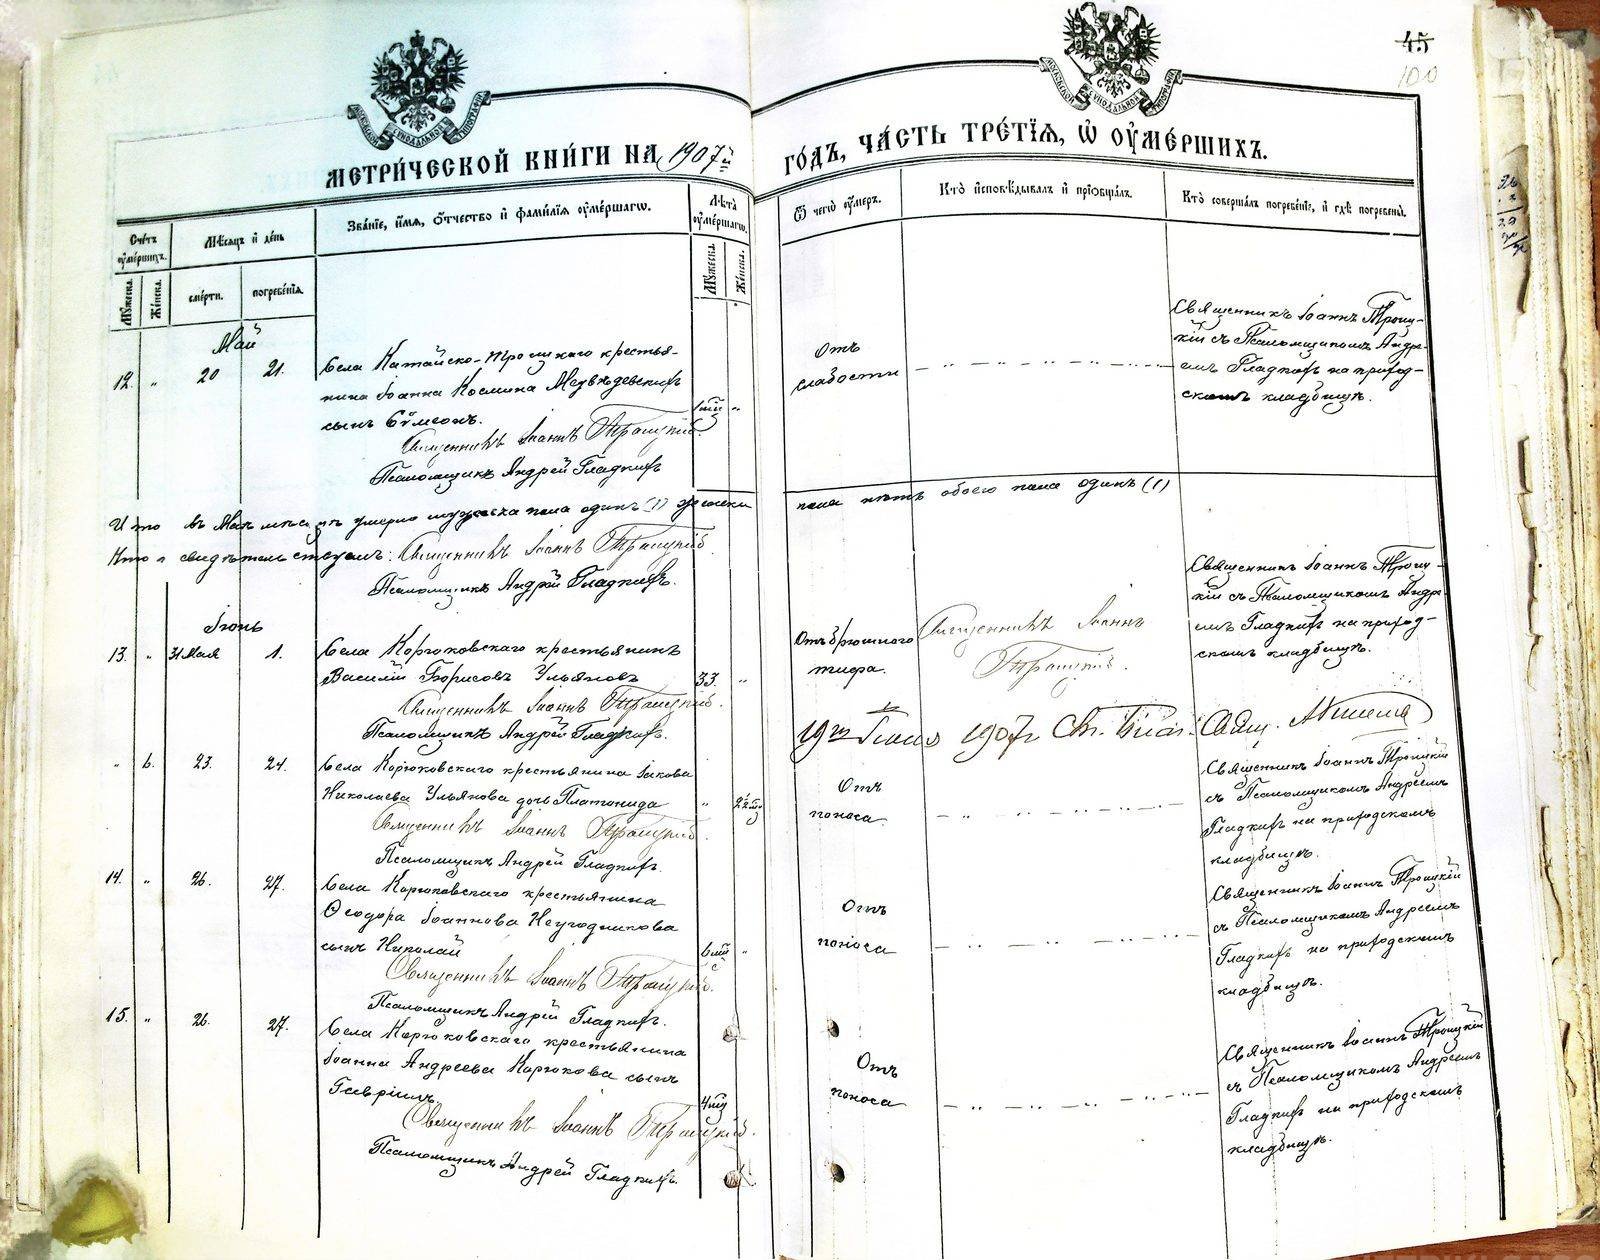 45
100
МОСКОВСКОЙ СѴНОДАЛЬНОЙ ТИПОГРАФІИ
МОСКОВСКОЙ СѴНОДАЛЬНОЙ ТИПОГРАФІИ
МЕТРИ́ЧЕСКОЙ КНИ́ГИ НА 1907й ГО́ДЪ, ЧА́СТЬ ТРЕ́ТІѦ, Ѡ҆ ОУ҆МЕ́РШИХЪ.
Сче́тъ оу҆ме́ршихъ.
Мꙋ́жеска.
Же́нска.
Мѣ́сяцъ и҆ де́нь
сме́рти.
погребе́нїѧ.
Зва́нїе, и҆́мѧ, ѻ҆́тчество и҆ фами́лїѧ оу҆ме́ршагѡ.
Лѣ́та оу҆ме́ршагѡ.
Мꙋ́жеска.
Же́нска.
Ѿ чегѡ̀ оу҆́меръ.
Кто̀ и҆сповѣ́дывалъ и҆ прїѡбща́лъ.
Кто̀ соверша́лъ погребе́нїе, и҆ гдѣ̀ погребены̀.
Май
12. " 20 21. Села Катайско-Троицкаго крестья-
нина Іоанна Космина Медвѣдевскихъ
сынъ Сѵмеонъ.
"
Священникъ Іоаннъ Троицкій.
Псаломщикъ Андрей Гладкихъ
Отъ
слабости
Священникъ Іоаннъ Троиц-
кій съ Псаломщикомъ Андре-
емъ Гладкихъ на приход-
скомъ кладбищѣ.
Итого въ Маѣ мѣсяцѣ умерло мужеска пола одинъ (1) женска пола нѣтъ обоего пола одинъ (1)
Что и свидѣтельствуемъ: Священникъ Іоаннъ Троицкій
Псаломщикъ Андрей Гладкихъ.
Іюнь
13. " 31 Мая 1. Села Корюковскаго крестьянинъ
Василій Борисовъ Ульяновъ 33. "
Священникъ Іоаннъ Троицкій.
Псаломщикъ Андрей Гладкихъ.
Отъ брюшного
тифа.
Священникъ Іоаннъ
Троицкій.
Священникъ Іоаннъ Троиц-
кій съ Псаломщикомъ Андре-
емъ Гладкихъ на приход-
скомъ кладбищѣ.
19го Іюня 1907г Свящ.
" 6. 23. 24. Села Корюковскаго крестьянина Іакова
Николаева Ульянова дочь Платонида "
Священникъ Іоаннъ Троицкій.
Псаломщикъ Андрей Гладкихъ.
Отъ
поноса.
Священникъ Іоаннъ Троицкій
съ Псаломщикомъ Андреемъ
Гладкихъ на приходскомъ
кладбищѣ.
14. " 26. 27. Села Корюковскаго крестьянина
Ѳеодора Іоаннова Неугодникова
сынъ Николай "
Священникъ Іоаннъ Троицкій.
Псаломщикъ Андрей Гладкихъ.
Отъ
поноса
Священникъ Іоаннъ Троицкій
съ Псаломщикомъ Андреемъ
Гладкихъ на приходскомъ
кладбищѣ.
15. " 26. 27. Села Корюковскаго крестьянина
Іоанна Андреева Корюкова сынъ
Гавріилъ.
Священникъ Іоаннъ Троицкій.
Псаломщикъ Андрей Гладкихъ.
Отъ
поноса
Священникъ Іоаннъ Троицкій
съ Псаломщикомъ Андреемъ
Гладкихъ на приходскомъ
кладбищѣ.